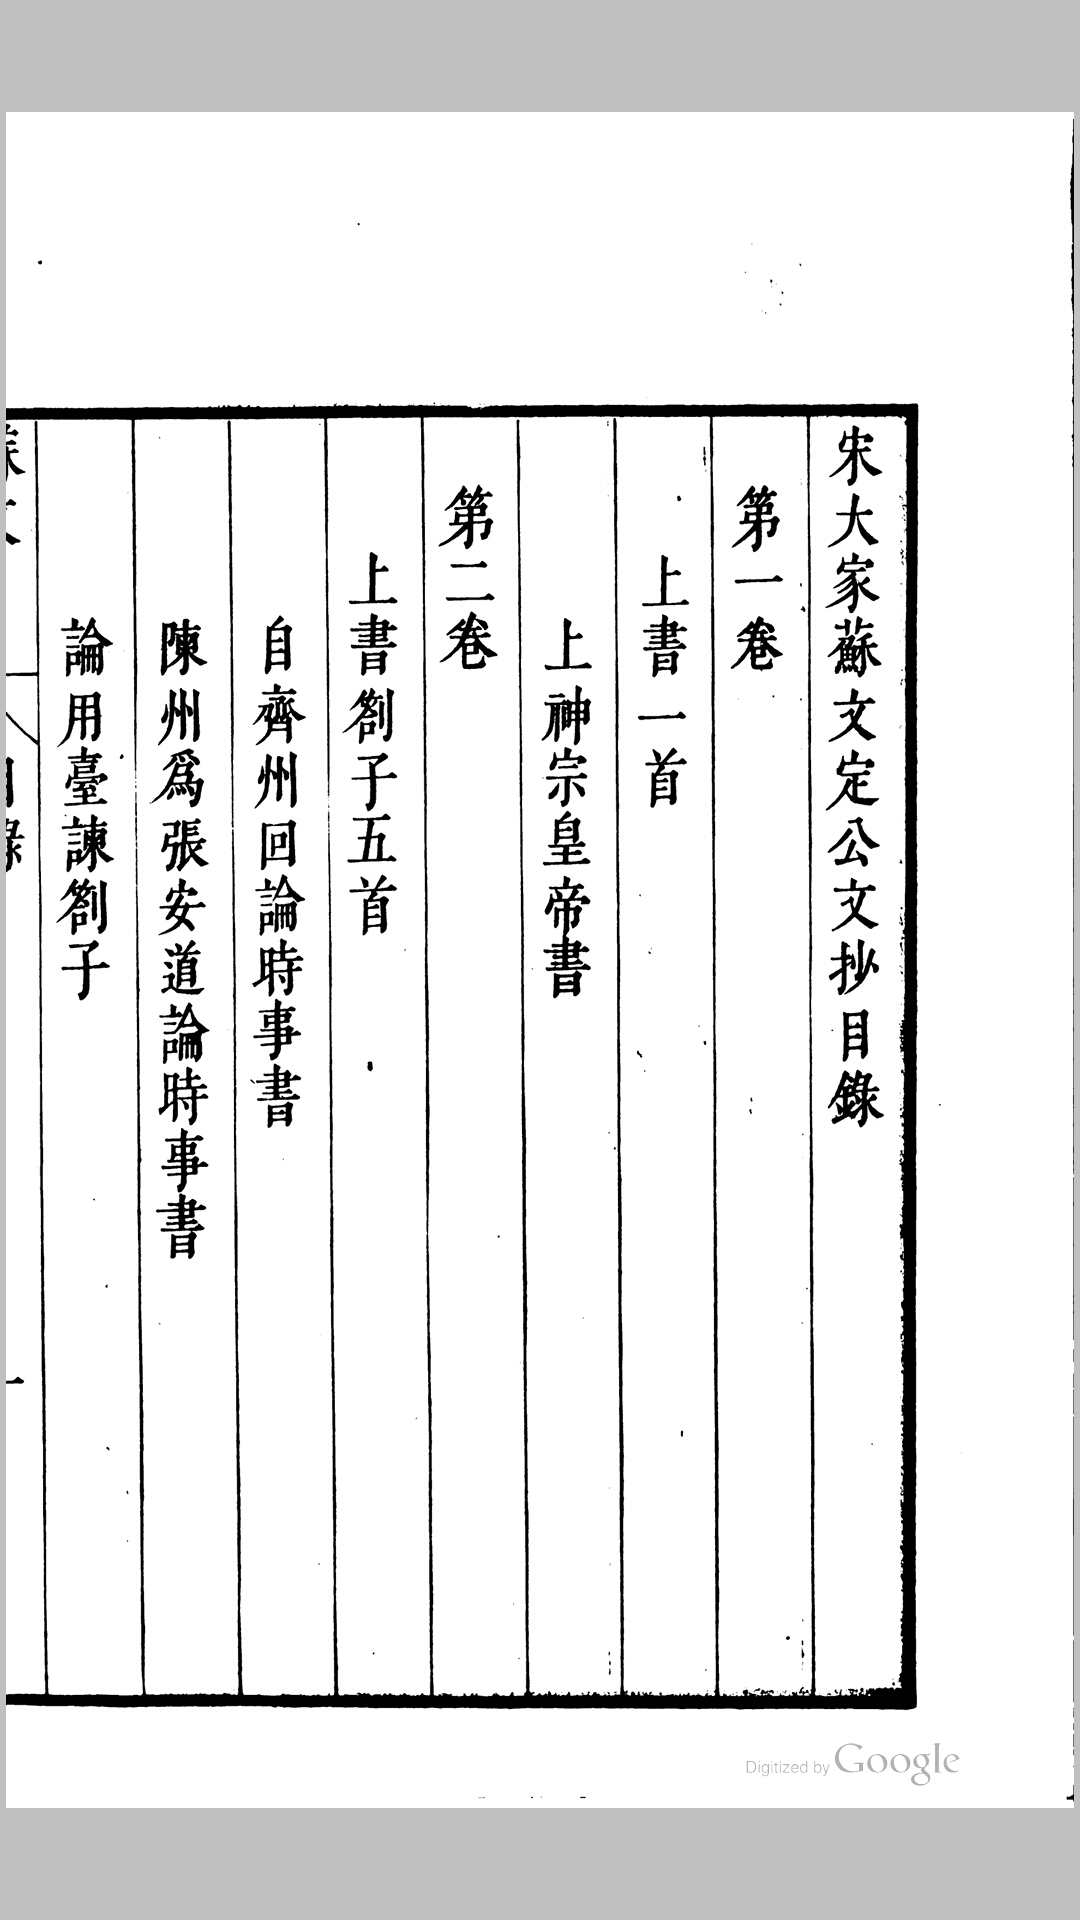 宋大家蘇文定公文抄目錄
第一卷
上書一首
上神宗皇帝書
第二卷
上書劄子五首
自齊州回論時事書
陳州爲張安道論時事書
論用臺諫劄子
Digitized by Google